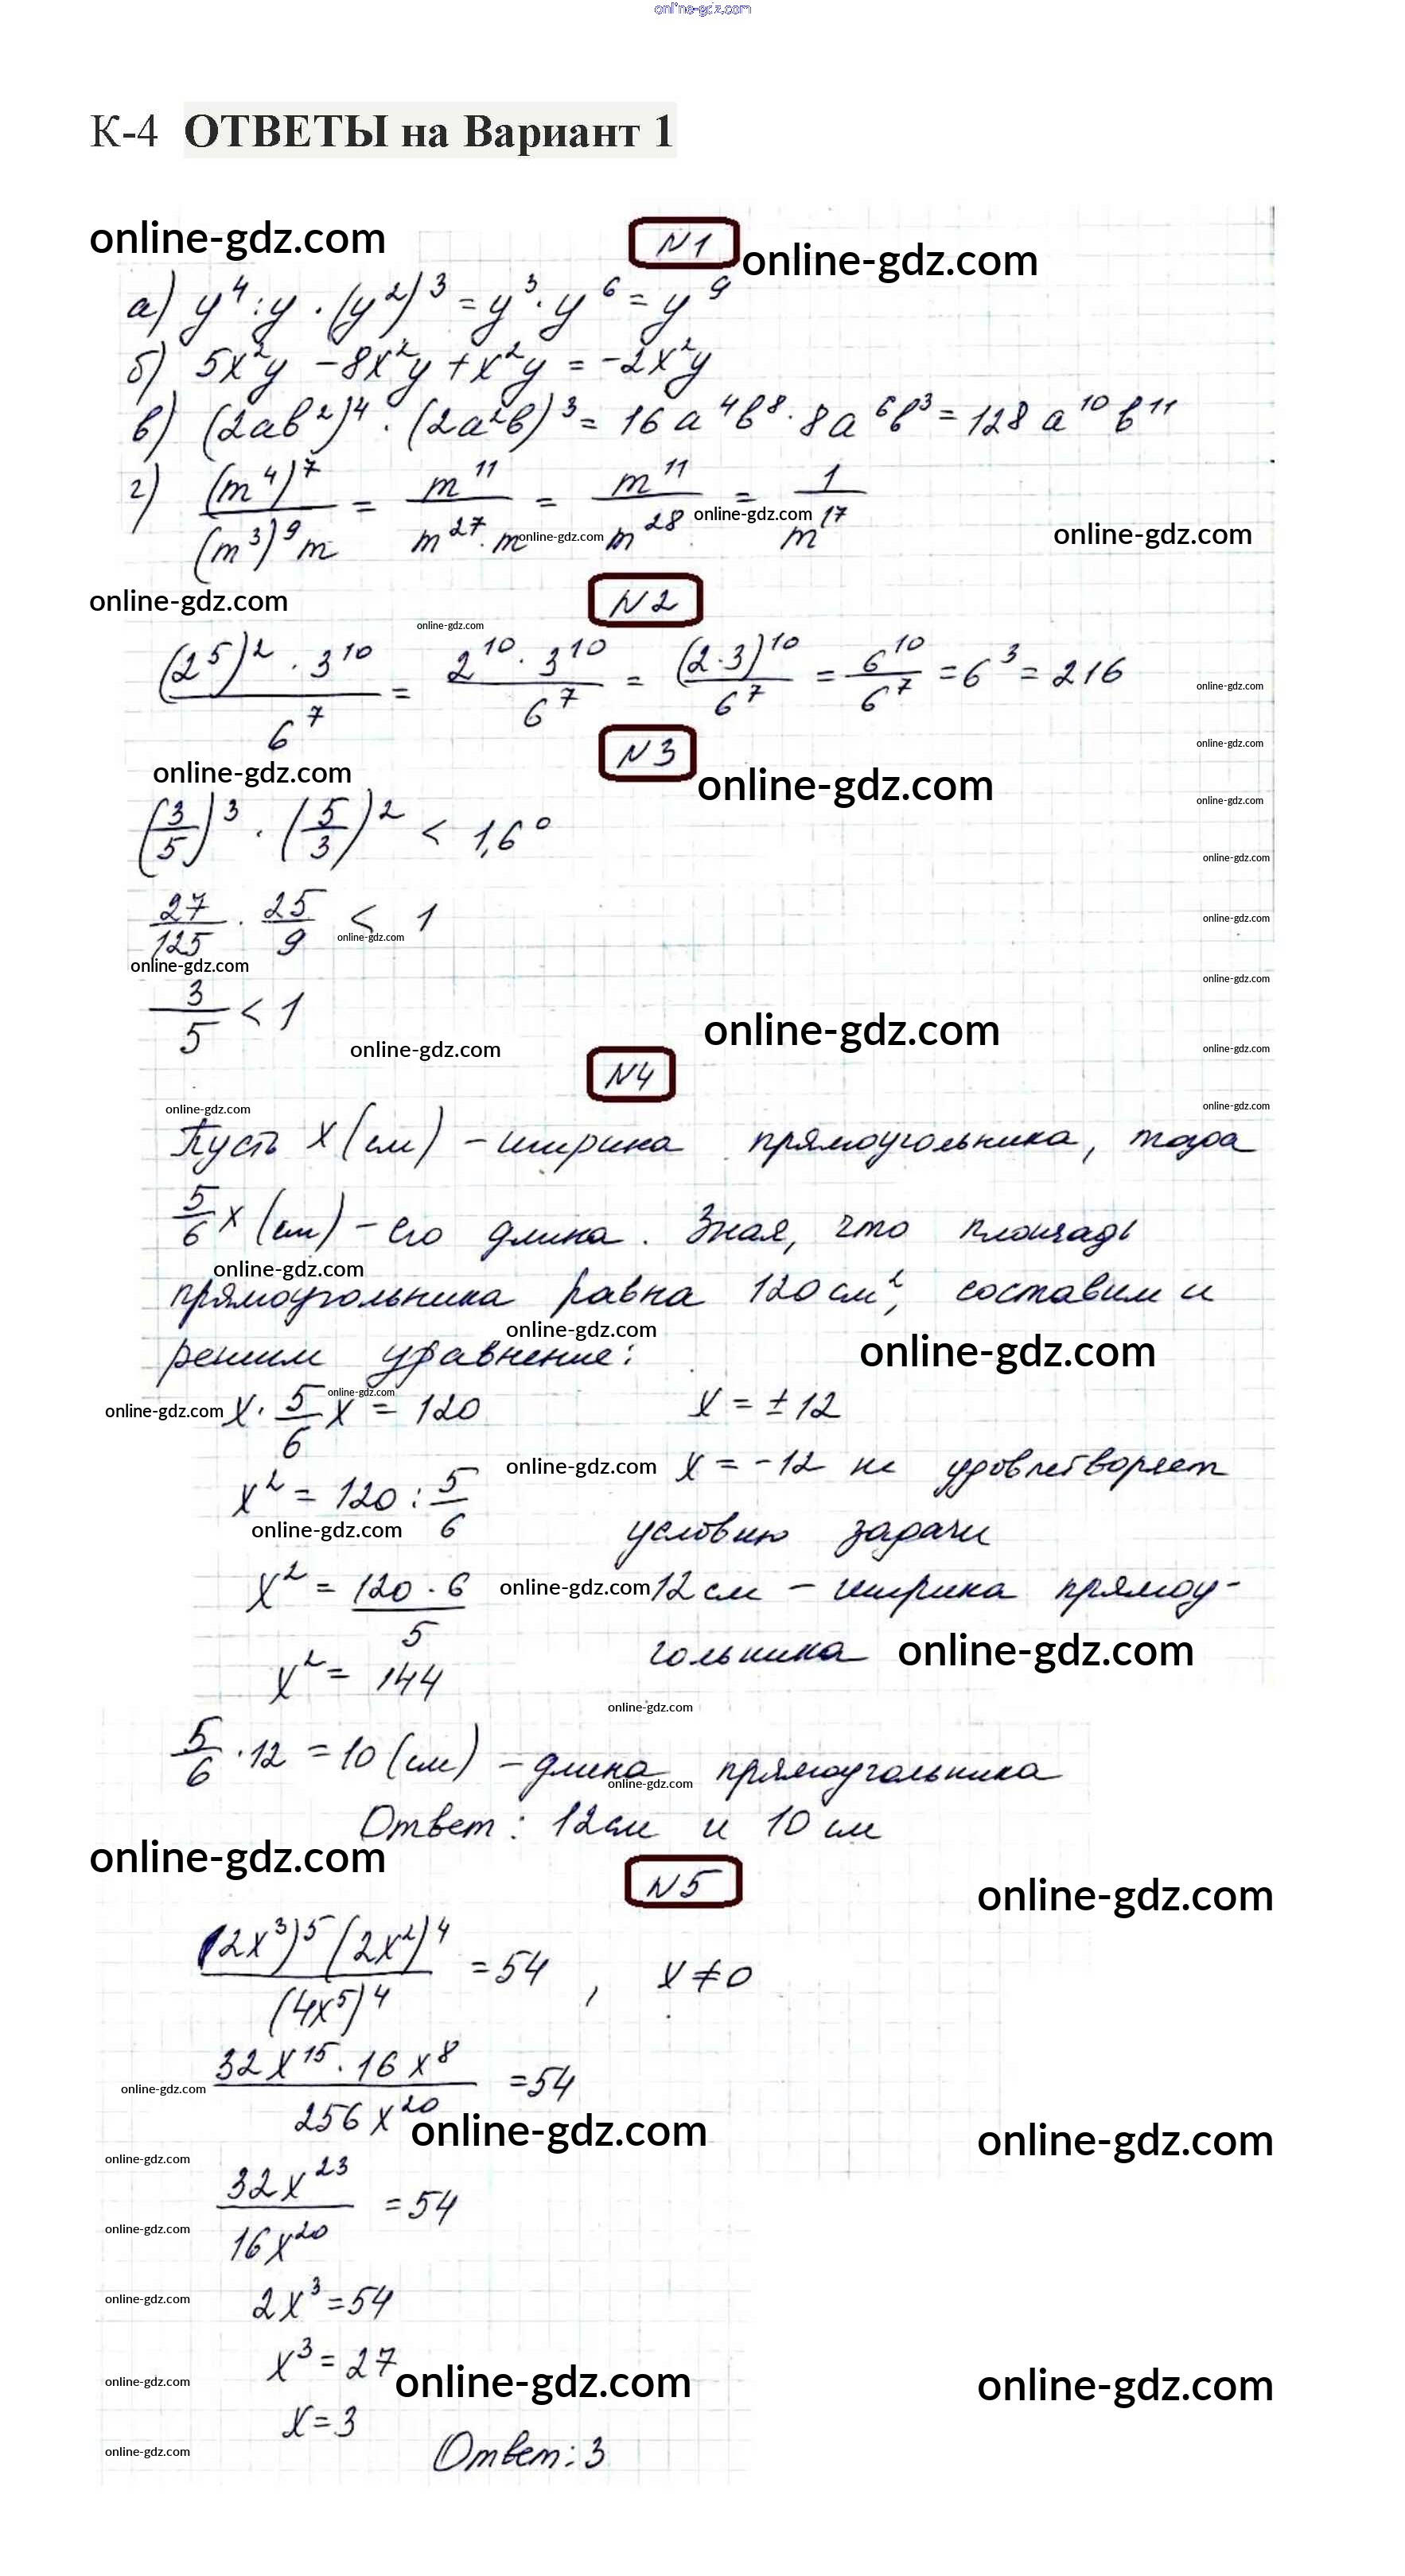 online-gdz.com
К-4 ОТВЕТЫ на Вариант 1
online-gdz.com
N1
online-gdz.com
а) y⁴ : y · (y²)³ = y³ · y⁶ = y⁹
б) 5x²y − 8x²y + x²y = −2x²y
в) (2ab²)⁴ · (2a²b)³ = 16a⁴b⁸ · 8a⁶b³ = 128a¹⁰b¹¹
г) (m⁴)⁷ / (m³)⁹m = m¹¹ / m²⁷·m = m¹¹ / m²⁸ = 1 / m¹⁷
online-gdz.com
online-gdz.com
online-gdz.com
online-gdz.com
N2
online-gdz.com
(2⁵)² · 3¹⁰ / 6⁷ = 2¹⁰ · 3¹⁰ / 6⁷ = (2·3)¹⁰ / 6⁷ = 6¹⁰ / 6⁷ = 6³ = 216
online-gdz.com
online-gdz.com
N3
online-gdz.com
online-gdz.com
online-gdz.com
(3/5)³ · (5/3)² < 1,6⁰
online-gdz.com
27/125 · 25/9 < 1
online-gdz.com
online-gdz.com
online-gdz.com
online-gdz.com
3/5 < 1
online-gdz.com
online-gdz.com
online-gdz.com
N4
online-gdz.com
online-gdz.com
Пусть x (см) − ширина прямоугольника, тогда
5/6 x (см) − его длина. Зная, что площадь
online-gdz.com
прямоугольника равна 120 см², составим и
online-gdz.com
решим уравнение:
online-gdz.com
online-gdz.com
online-gdz.com
x · 5/6 x = 120
x² = 120 : 5/6
online-gdz.com
x² = 120 · 6 / 5
x² = 144
x = ± 12
online-gdz.com
x = −12 не удовлетворяет
условию задачи
online-gdz.com
12 см − ширина прямоу-
гольника
online-gdz.com
online-gdz.com
5/6 · 12 = 10 (см) − длина прямоугольника
online-gdz.com
Ответ: 12 см и 10 см
online-gdz.com
N5
online-gdz.com
(2x³)⁵ (2x²)⁴ / (4x⁵)⁴ = 54 , x ≠ 0
32x¹⁵ · 16x⁸ / 256x²⁰ = 54
online-gdz.com
online-gdz.com
online-gdz.com
online-gdz.com
32x²³ / 16x²⁰ = 54
online-gdz.com
2x³ = 54
online-gdz.com
x³ = 27
online-gdz.com
online-gdz.com
online-gdz.com
x = 3
Ответ: 3
online-gdz.com